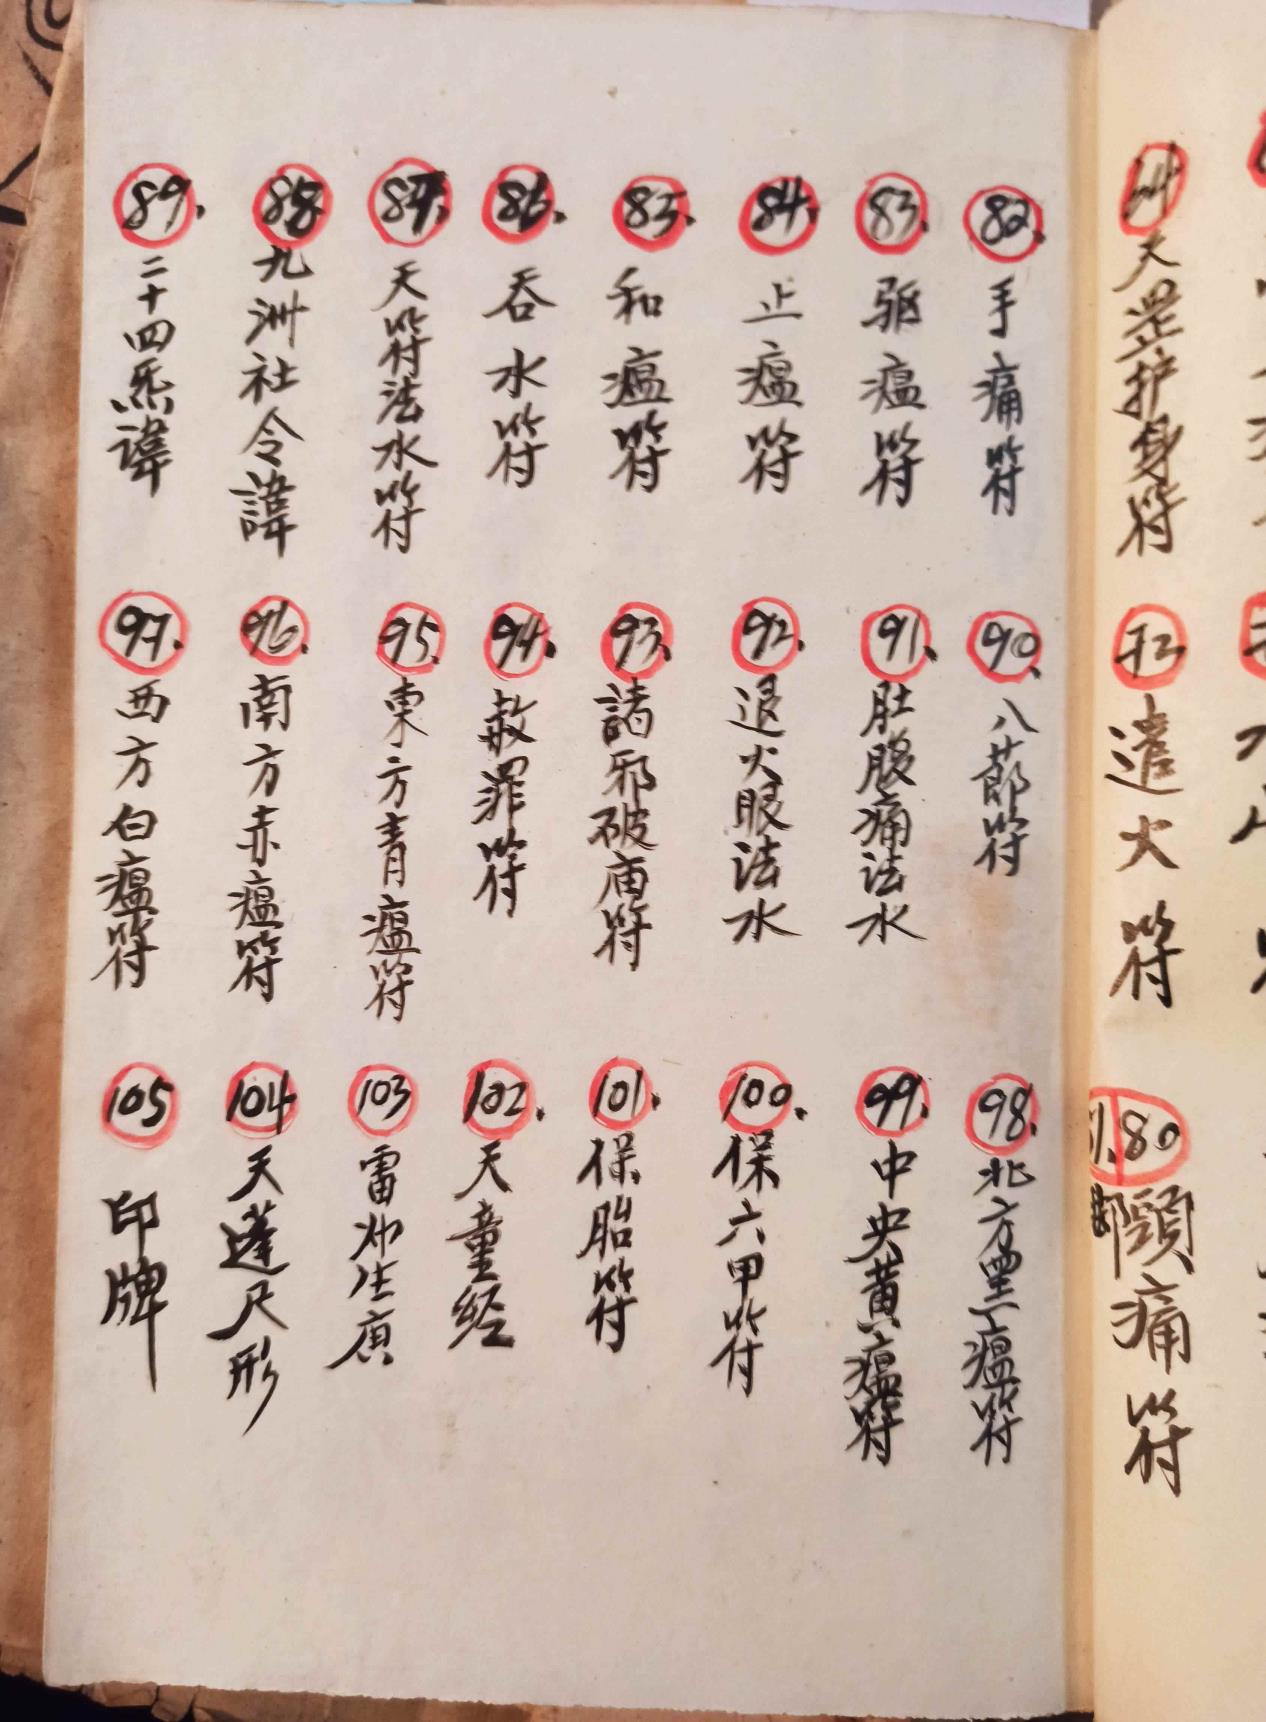 64
天罡护身符
72
遣火符
80
頸痛符
82.
手痛符
83.
驱瘟符
84.
止瘟符
85.
和瘟符
86.
吞水符
87.
天符法水符
88.
九洲社令諱
89.
二十四炁諱
90.
八節符
91.
肚腹痛法水
92.
退火眼法水
93.
諸邪破庙符
94.
赦罪符
95.
東方青瘟符
96.
南方赤瘟符
97.
西方白瘟符
98.
北方黑瘟符
99.
中央黄瘟符
100.
保六甲符
101.
保胎符
102.
天童经
103
雷帅生庚
104
天蓬尺形
105
印牌